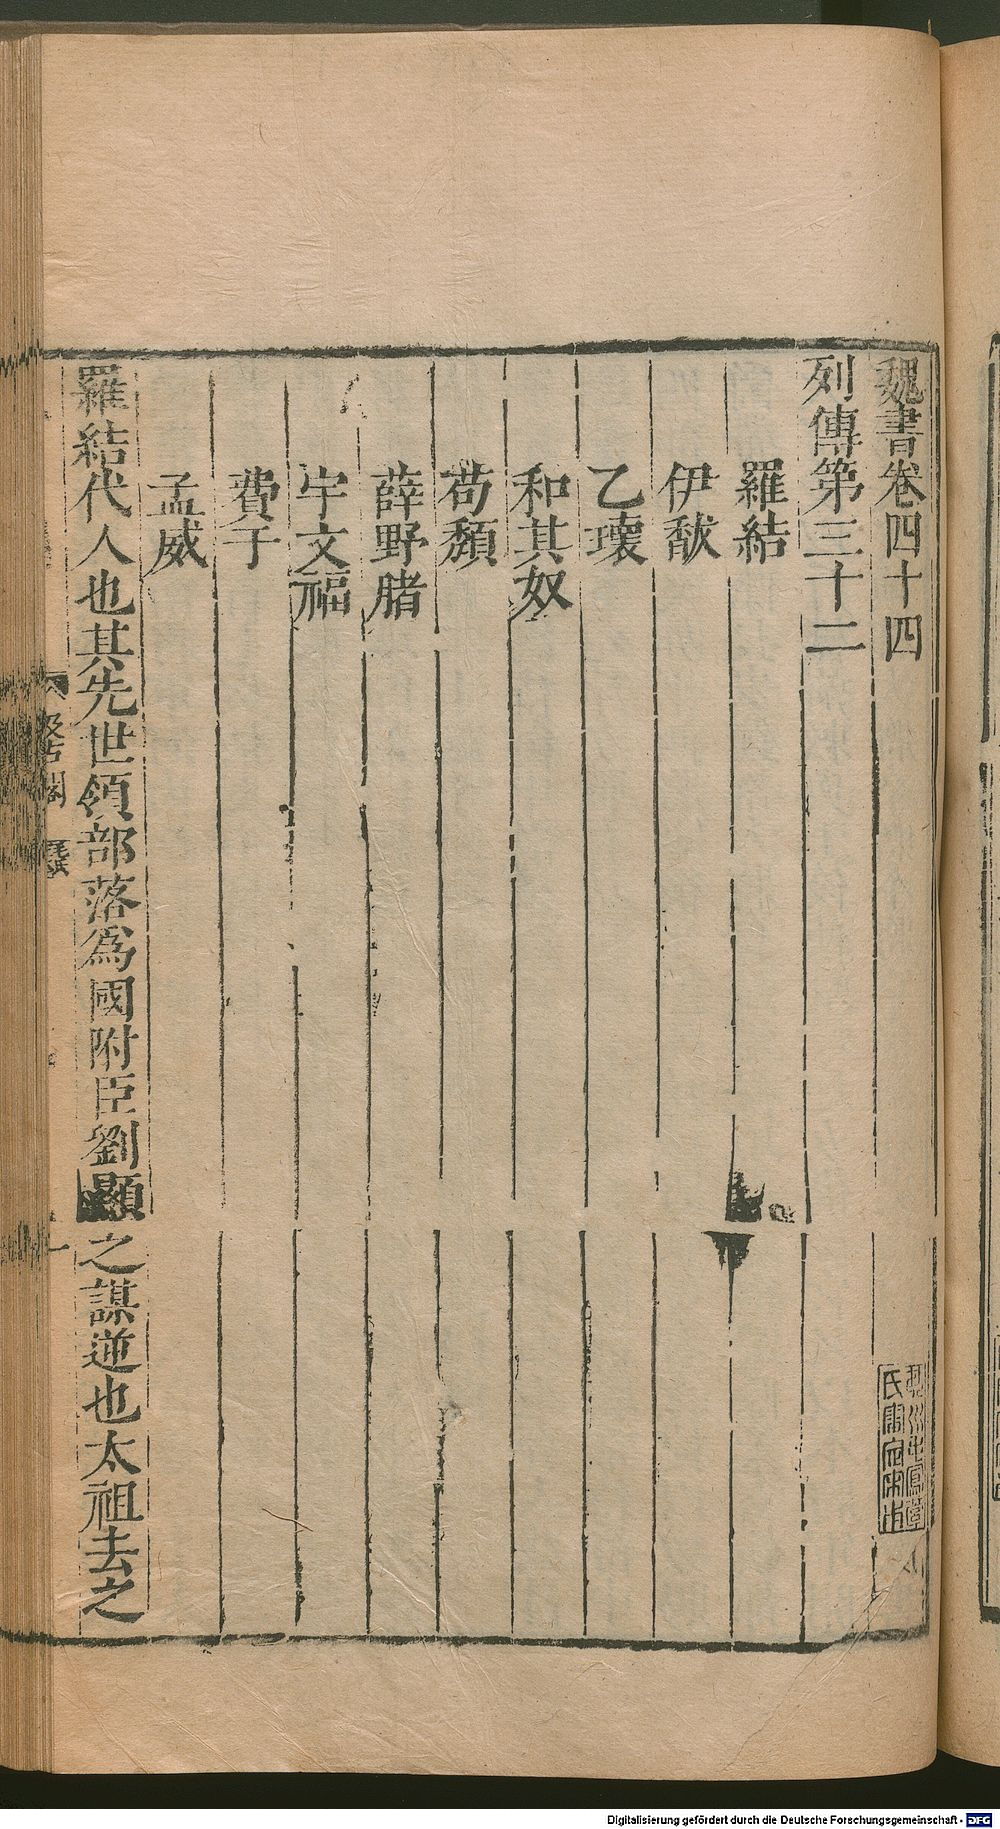 魏書卷四十四
列傳第三十二
羅結
伊馛
乙瓌
和其奴
苟頹
薛野䐗
宇文福
費于
孟威
羅結代人也其先世領部落為國附臣劉顯之謀逆也太祖去之
汲古閣
毛氏
一
Digitalisierung gefördert durch die Deutsche Forschungsgemeinschaft - DFG